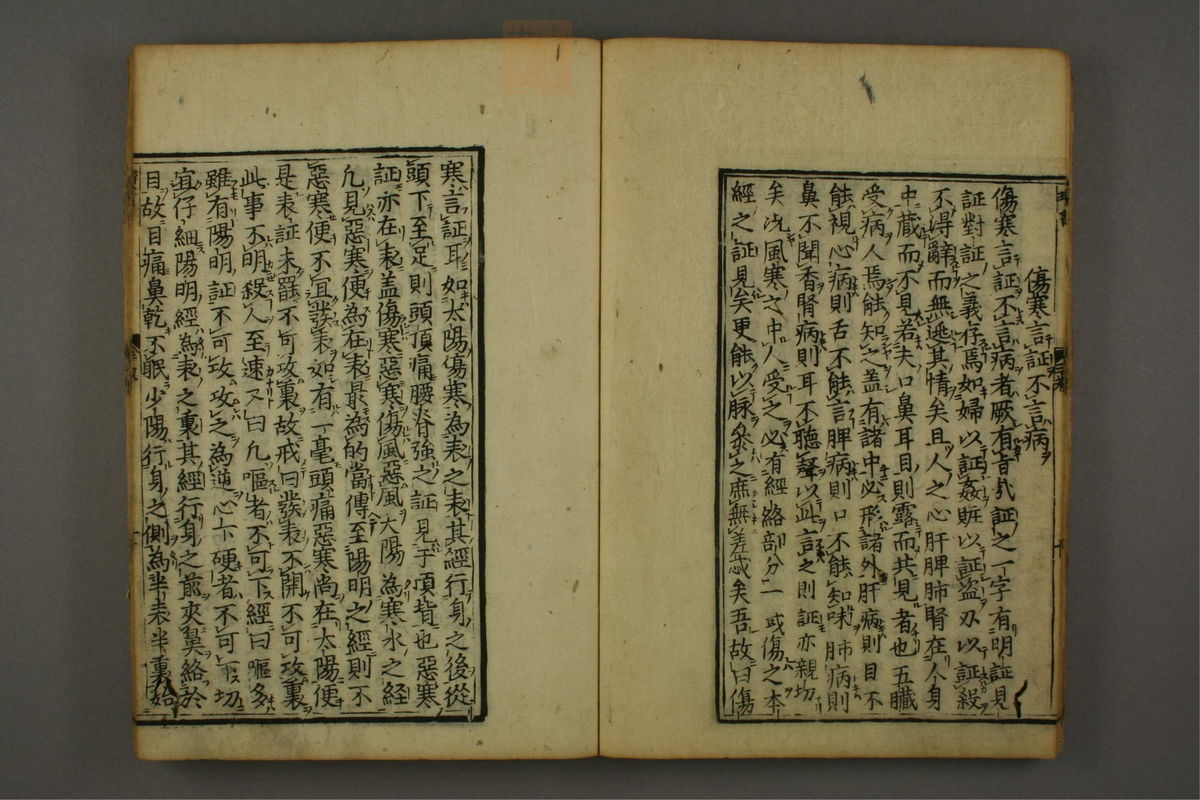 傷寒言証不言病
傷寒言証不言病者厥有旨哉証之一字有明証見
証對証之義存焉如婦以証姦賍以証盗刃以証殺
不得辭而無逃其情矣且人之心肝脾肺腎在人身
中藏而不見若夫口鼻耳目則露而共見者也五臓
受病人焉能知之盖有諸中必形諸外肝病則目不
能視心病則舌不能言脾病則口不能知味肺病則
鼻不聞香腎病則耳不聴聲以此言之則証亦親切
矣况風寒之中人受之必有經絡部分一或傷之本
經之証見矣更能以脉叅之庶無差忒矣吾故曰傷
寒言証耳如太陽傷寒為表之表其經行身之後從
頭下至足則頭頂痛腰脊強之証見于頂背也惡寒
証亦在表盖傷寒惡寒傷風惡風太陽為寒水之経
凡見惡寒便為在表最為的當傳至陽明之經則不
惡寒便不宜發表如有一毫頭痛惡寒尚在太陽便
是表証未罷不可攻裏故戒曰發表不開不可攻裏
此事不明殺人至速又曰凡嘔者不可下經曰嘔多
雖有陽明証不可攻攻之為逆心下硬者不可下切
宜仔細陽明經為表之裏其經行身之前夾鼻絡於
目故目痛鼻乾不眠少陽行身之側為半表半裏始